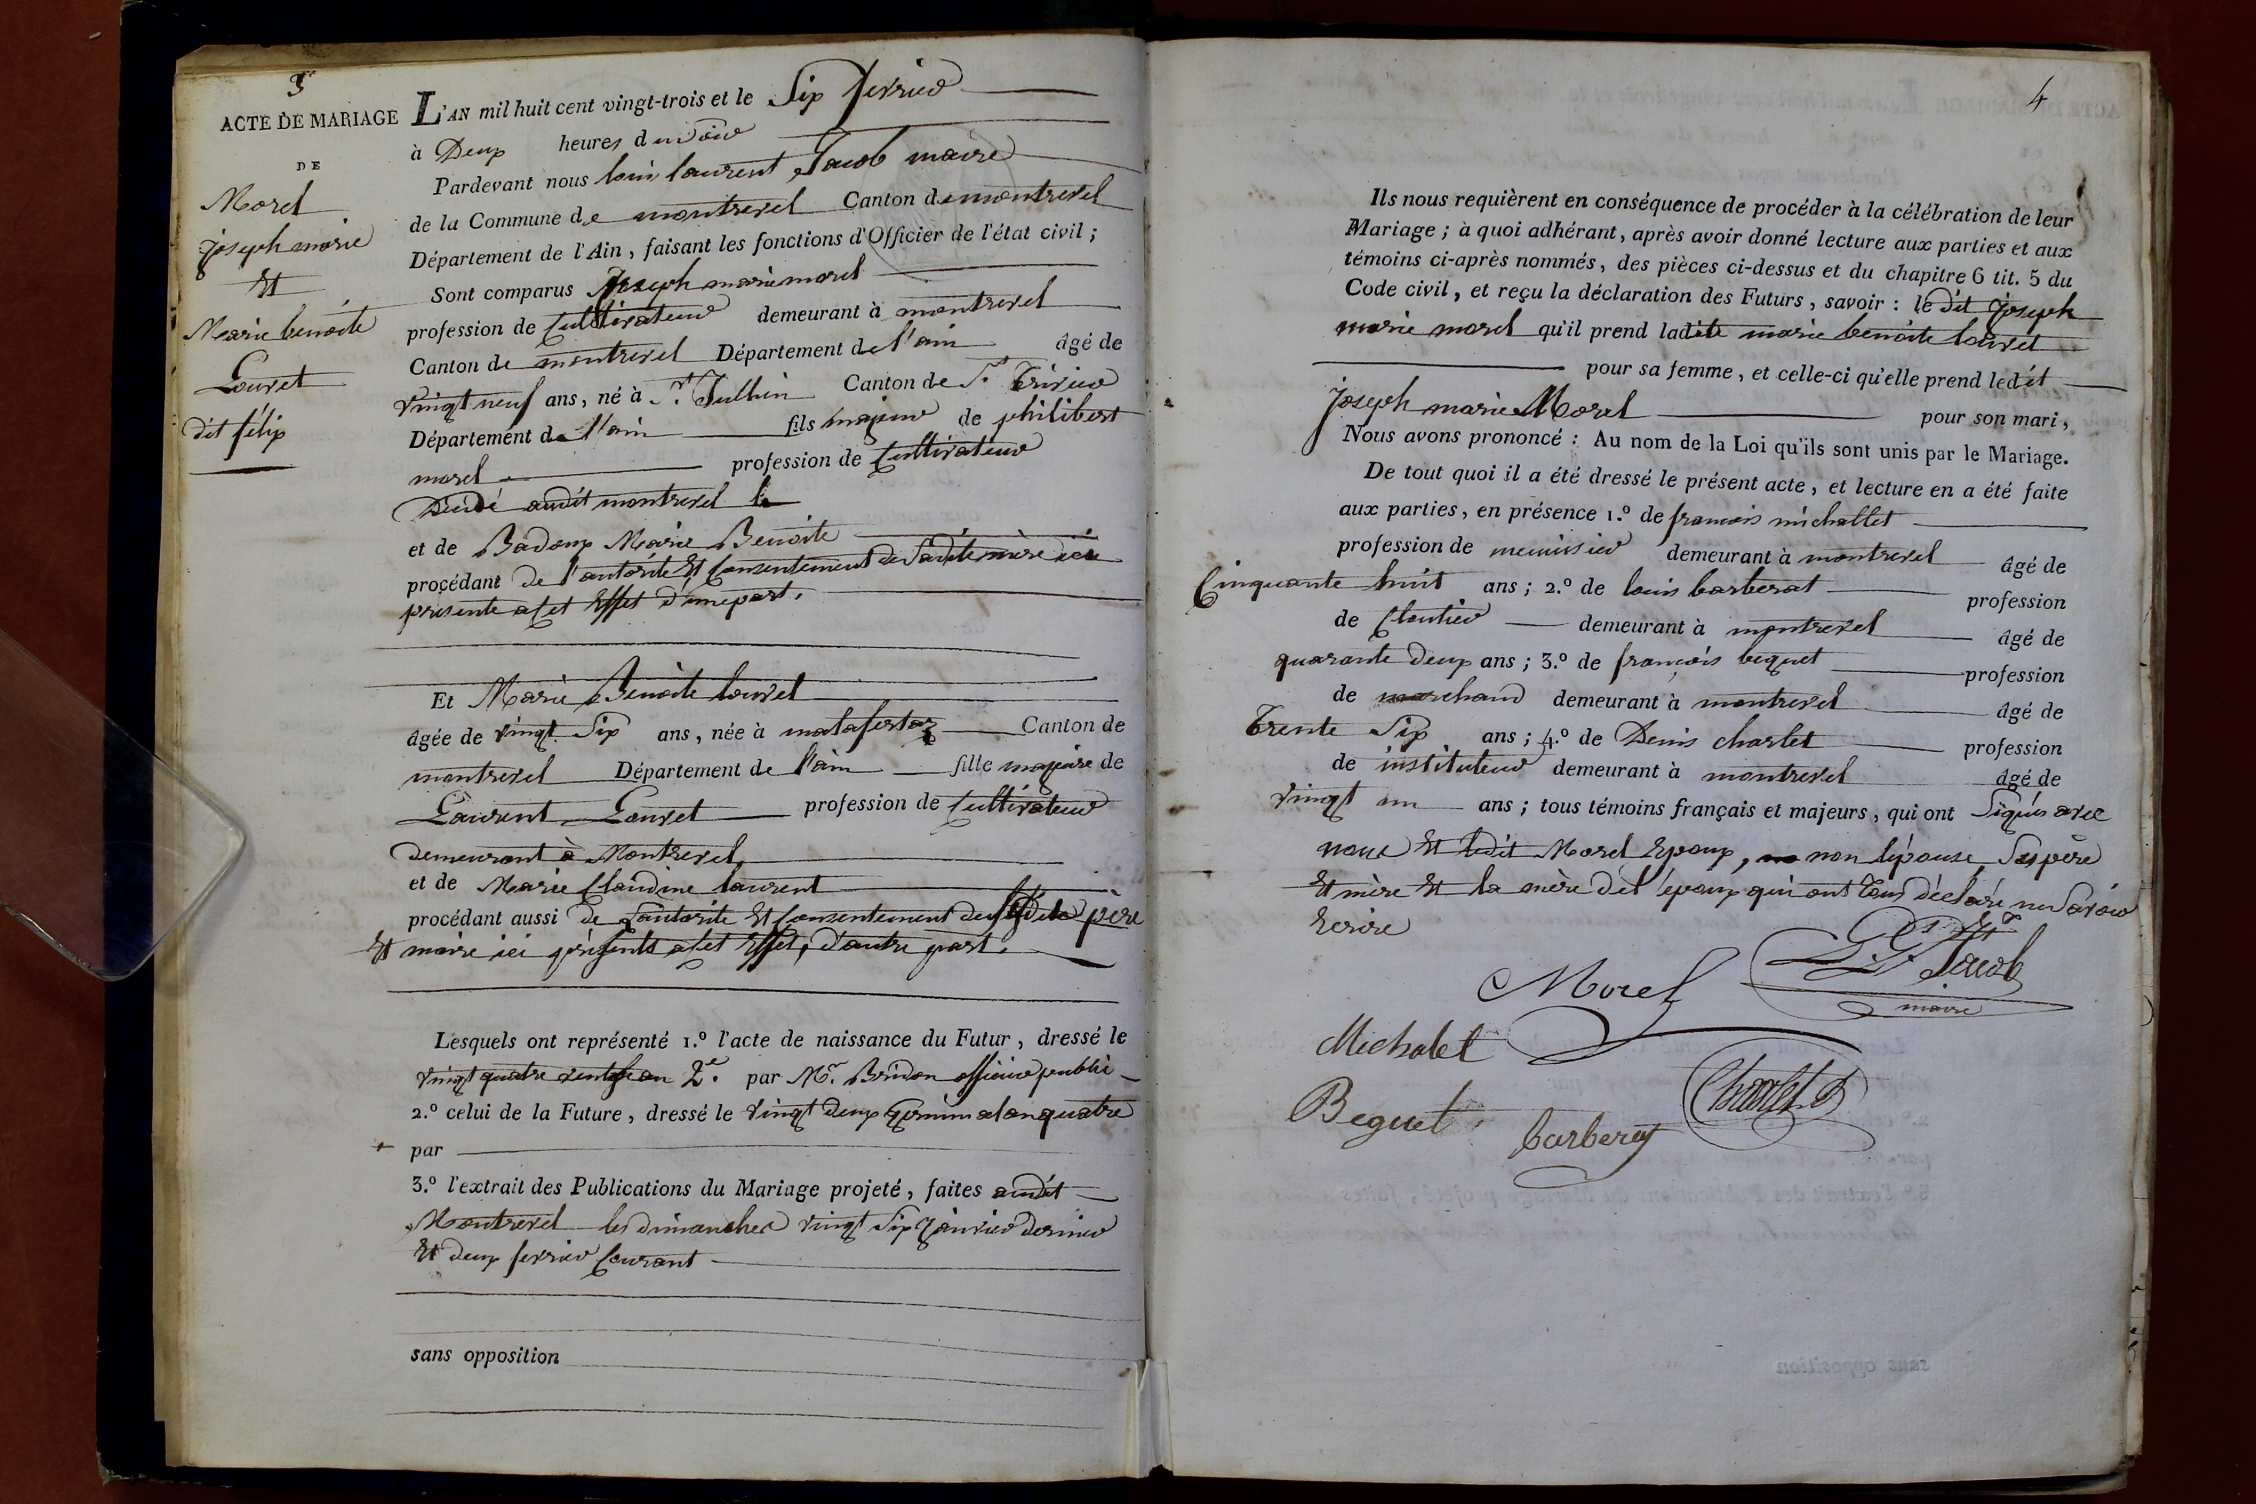 3
ACTE DE MARIAGE
DE
Morel
joseph marie
Et
Marie benoite
Louvet
dit félix
L'AN mil huit cent vingt-trois et le Six fevrier
à Deux heures du Soir
Pardevant nous louis laurent Jacob maire
de la Commune de montrevel Canton de montrevel
Département de l'Ain, faisant les fonctions d'Officier de l'état civil ;
Sont comparus Joseph marie morel
profession de Cultivateur demeurant à montrevel
Canton de montrevel Département de l'ain âgé de
vingt neuf ans, né à St. Jullien Canton de St. Trivier
Département de l'ain fils majeur de philibert
morel profession de Cultivateur
Décédé audit montrevel le
et de Badoux Marie Benoite
procédant De l'autorité Et Consentement de Saditte mère ici
présente a Cet Effet d'une part.
Et Marie Benoite louvet
âgée de vingt Six ans, née à malafertaz Canton de
montrevel Département de l'ain fille majeure de
Laurent Louvet profession de Cultivateur
demeurant à Montrevel,
et de Marie Claudine laurent
procédant aussi de Lautorité Et Consentement de père
Et maire ici présents a Cet Effet, d'autre part.
Lesquels ont représenté 1.º l'acte de naissance du Futur, dressé le
vingt quatre ventose an 2e. par Mr. Bridon officier public
2.º celui de la Future, dressé le vingt deux Germinal an quatre
par
3.º l'extrait des Publications du Mariage projeté, faites audit
Montrevel les dimanches vingt Six Janvier dernier
Et deux fevrier Courant
sans opposition
4
Ils nous requièrent en conséquence de procéder à la célébration de leur
Mariage ; à quoi adhérant, après avoir donné lecture aux parties et aux
témoins ci-après nommés, des pièces ci-dessus et du chapitre 6 tit. 5 du
Code civil, et reçu la déclaration des Futurs, savoir : le dit Joseph
marie morel qu'il prend ladite marie benoite louvet
pour sa femme, et celle-ci qu'elle prend ledit
Joseph marie Morel pour son mari,
Nous avons prononcé : Au nom de la Loi qu'ils sont unis par le Mariage.
De tout quoi il a été dressé le présent acte, et lecture en a été faite
aux parties, en présence 1.º de francois michallet
profession de menuisier demeurant à montrevel âgé de
Cinquante huit ans ; 2.º de louis barberat profession
de Cloutier demeurant à montrevel âgé de
quarante deux ans ; 3.º de françois bequet profession
de marchand demeurant à montrevel âgé de
Trente Six ans ; 4.º de Denis charlet profession
de instituteur demeurant à montrevel âgé de
vingt un ans ; tous témoins français et majeurs, qui ont Signés avec
nous Et ledit Morel Epoux, non l'épouse Ses père
Et mère Et la mère del l'époux qui ont tous déclaré ne Savoir
Ecrire
Morel
Jacob
maire
Michalet
Charlet D
Beguet
barberat